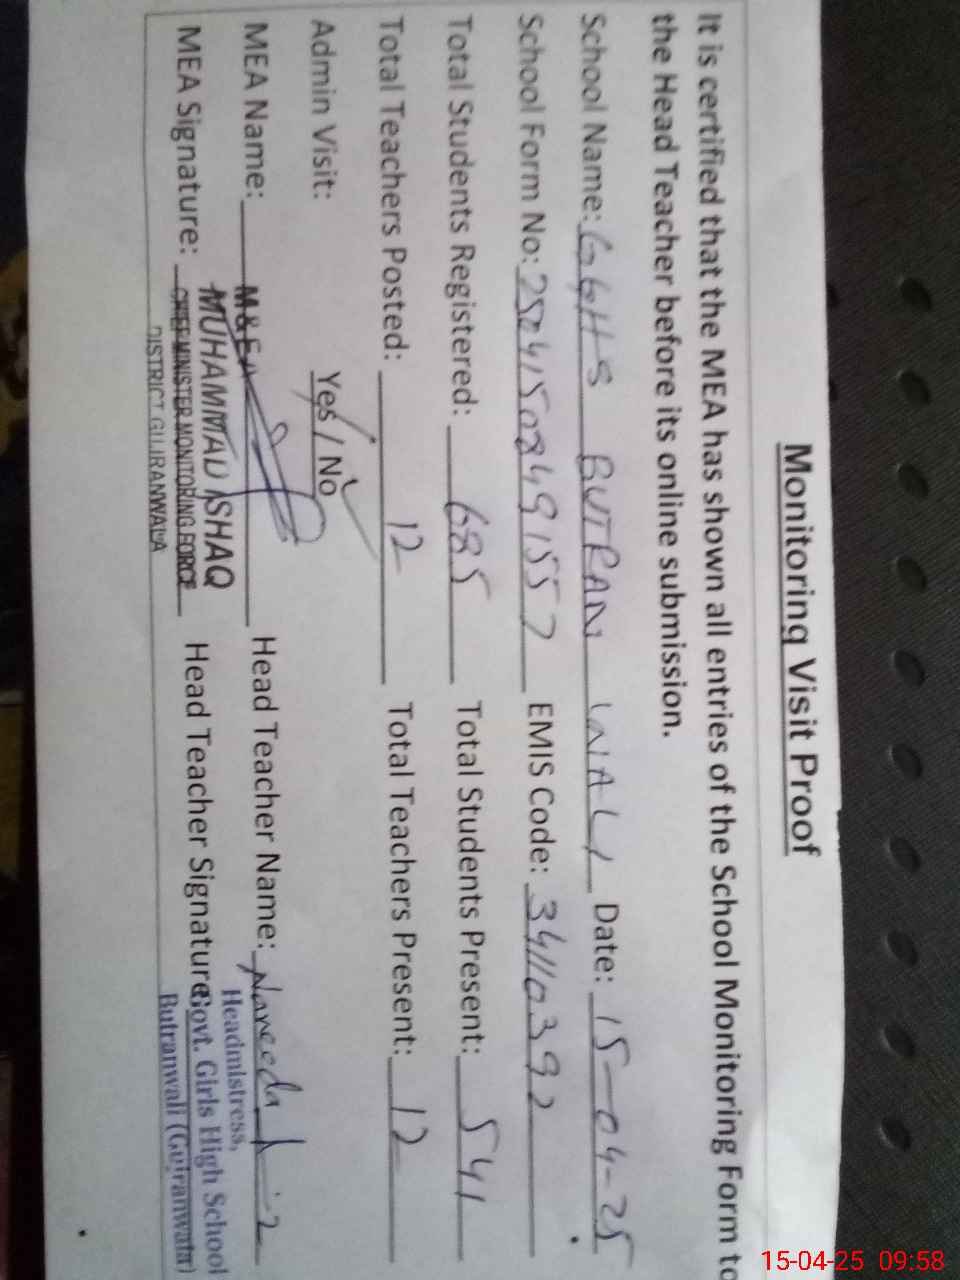 Monitoring Visit Proof
It is certified that the MEA has shown all entries of the School Monitoring Form to
the Head Teacher before its online submission.
School Name: GGHS BUTRAN WALI Date: 15-04-25
School Form No: 2504150849157 EMIS Code: 34110392
Total Students Registered: 685 Total Students Present: 541
Total Teachers Posted: 12 Total Teachers Present: 12
Admin Visit: Yes / No
MEA Name: M&EA Head Teacher Name: Naveeda
MUHAMMAD ASHAQ Headmistress,
MEA Signature: CHIEF MINISTER MONITORING FORCE Head Teacher Signature: Govt. Girls High School
DISTRICT GUJRANWALA Butranwali (Gujranwala)
15-04-25 09:58